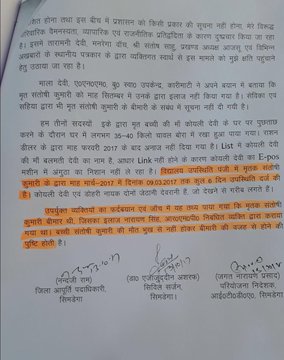 होना तथा इस बीच में प्रशासन को किसी प्रकार की सूचना नहीं होना, मेरे विरूद्ध
पारिवारिक वैमनस्यता, व्यापारिक एवं राजनीतिक प्रतिद्वंदिता के कारण दुष्प्रचार किया जा रहा
है। इसमें तारामनी देवी, मनरेगा वॉच, श्री संतोष साहू, प्रखण्ड अध्यक्ष आजसू एवं विभिन्न
अखबारों के स्थानीय पत्रकार के द्वारा व्यक्तिगत स्वार्थ से इस मामले को मुझे क्षति पहुंचाने
हेतु उठाया जा रहा है।
माला देवी, ए०एन०एम०, बृ० स्वा० उपकेन्द्र, कारीमाटी ने अपने बयान में बताया कि
मृत संतोषी कुमारी को माह सितम्बर में उनके द्वारा इलाज नहीं किया गया है। सेविका एवं
सहिया द्वारा भी मृत संतोषी कुमारी के बीमारी के संबंध में सूचना नहीं दी गयी है।
हम तीनों सदस्यों इसके द्वारा मृत बच्ची की माँ कोयली देवी के घर पर पूछताछ
करने के दौरान घर में लगभग 35-40 किलो चावल बोरा में रखा हुआ पाया गया। राशन
डीलर के द्वारा माह फरवरी 2017 के बाद अनाज नहीं दिया गया है। List में कोयली देवी
की माँ बालमती देवी का नाम है, आधार Link नहीं होने के कारण कोयली देवी का E-pos
मशीन में अंगुठा का निशान नहीं ले रहा है। विद्यालय उपस्थिति पंजी में मृतक संतोषी
कुमारी के द्वारा माह मार्च-2017 में दिनांक 09.03.2017 तक कुल 6 दिन उपस्थिति दर्ज की
है। कोयली देवी एवं डोहरी नायक दोनों जेठानी देवरानी हैं, जो देखने से गरीब लगते हैं।
उपर्युक्त व्यक्तियों का फर्दबयान एवं जाँच में यह तथ्य पाया गया कि मृतक संतोषी
कुमारी बीमार थी, जिसका इलाज नारायण सिंह, आर०एम०पी० निबंधित व्यक्ति द्वारा कराया
गया था। बच्ची संतोषी कुमारी की मौत भुख से नहीं होकर बिमारी की वजह से होने की
पुष्टि होती है।
(नन्दजी राम) (डा० एजीजुद्दीन अशरफ) (जगत नारायण प्रसाद)
जिला आपूर्ति पदाधिकारी, सिविल सर्जन परियोजना निदेशक,
सिमडेगा। सिमडेगा। आई०टी०डी०ए०, सिमडेगा।